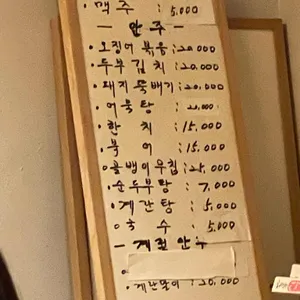 · 맥주 : 5,000
— 안주 —
· 오징어볶음 : 20,000
· 두부김치 : 20,000
· 돼지뚝배기 : 20,000
· 어묵탕 : 20,000
· 한치 : 15,000
· 북어 : 15,000
· 골뱅이무침 : 25,000
· 순두부탕 : 7,000
· 계란탕 : 5,000
· 국수 : 5,000
— 계절안주
계란말이 : 20,000